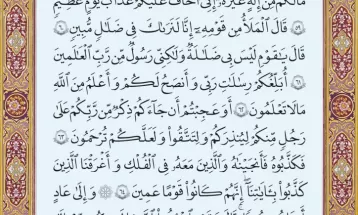 مَا لَكُم مِّنْ إِلَٰهٍ غَيْرُهُۥٓ إِنِّىٓ أَخَافُ عَلَيْكُمْ عَذَابَ يَوْمٍ عَظِيمٍ
٥٩ قَالَ ٱلْمَلَأُ مِن قَوْمِهِۦٓ إِنَّا لَنَرَىٰكَ فِى ضَلَٰلٍ مُّبِينٍ ٦٠
قَالَ يَٰقَوْمِ لَيْسَ بِى ضَلَٰلَةٌ وَلَٰكِنِّى رَسُولٌ مِّن رَّبِّ ٱلْعَٰلَمِينَ
٦١ أُبَلِّغُكُمْ رِسَٰلَٰتِ رَبِّى وَأَنصَحُ لَكُمْ وَأَعْلَمُ مِنَ ٱللَّهِ
مَا لَا تَعْلَمُونَ ٦٢ أَوَعَجِبْتُمْ أَن جَآءَكُمْ ذِكْرٌ مِّن رَّبِّكُمْ عَلَىٰ
رَجُلٍ مِّنكُمْ لِيُنذِرَكُمْ وَلِتَتَّقُوا۟ وَلَعَلَّكُمْ تُرْحَمُونَ ٦٣
فَكَذَّبُوهُ فَأَنجَيْنَٰهُ وَٱلَّذِينَ مَعَهُۥ فِى ٱلْفُلْكِ وَأَغْرَقْنَا ٱلَّذِينَ
كَذَّبُوا۟ بِـَٔايَٰتِنَآ إِنَّهُمْ كَانُوا۟ قَوْمًا عَمِينَ ٦٤ وَإِلَىٰ عَادٍ